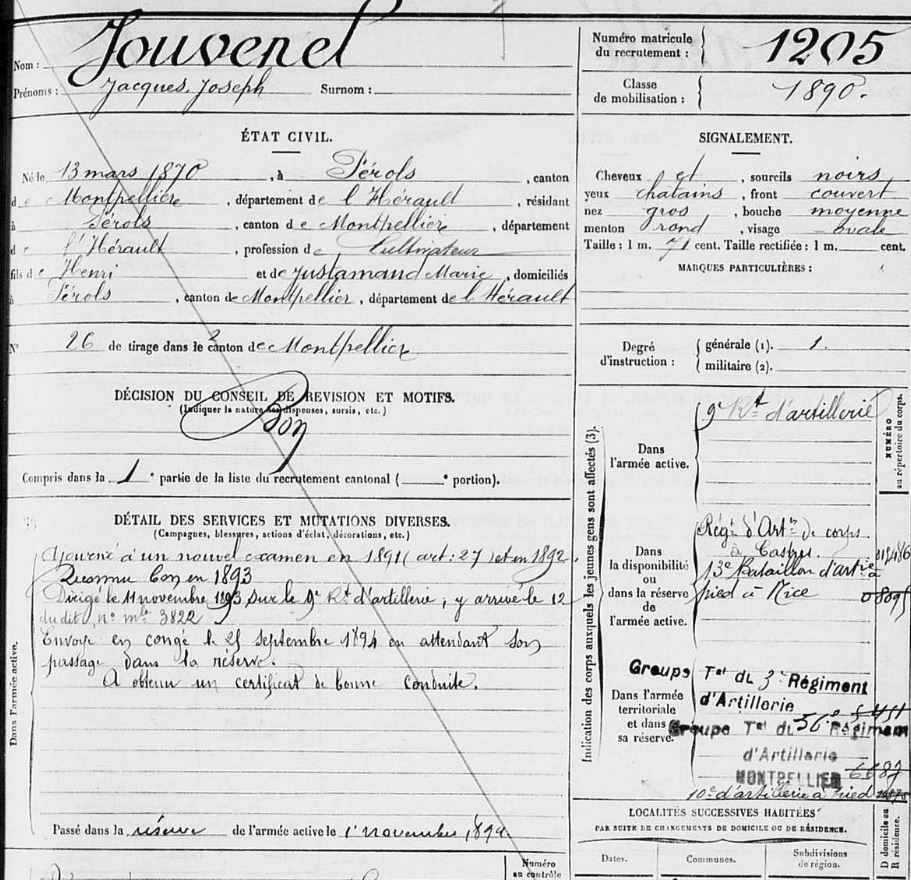 Nom : Jouvenel
Prénoms : Jacques, Joseph Surnom :
Numéro matricule du recrutement : 1205
Classe de mobilisation : 1890.
ÉTAT CIVIL.
Né le 13 mars 1870, à Pérols, canton
de Montpellier, département de l'Hérault, résidant
à Pérols, canton de Montpellier, département
de l'Hérault, profession de Cultivateur
fils de Henri et de Justamand Marie, domiciliés
à Pérols, canton de Montpellier, département de l'Hérault
N° 26 de tirage dans le 2 canton de Montpellier
DÉCISION DU CONSEIL DE REVISION ET MOTIFS.
(Indiquer la nature des dispenses, sursis, etc.)
Bon
Compris dans la 1e partie de la liste du recrutement cantonal ( e portion).
DÉTAIL DES SERVICES ET MUTATIONS DIVERSES.
(Campagnes, blessures, actions d'éclat, décorations, etc.)
Dans l'armée active.
Ajourné à un nouvel examen en 1891 (art: 27) et en 1892
Reconnu bon en 1893
Dirigé le 11 novembre 1893 sur le 9e Rt d'artillerie; y arrive le 12
du dit, n° mle 3822
Envoyé en congé le 25 septembre 1894 en attendant son
passage dans la réserve.
A obtenu un certificat de bonne conduite.
Passé dans la réserve de l'armée active le 1er novembre 1894
Numéro
au contrôle
SIGNALEMENT.
Cheveux et, sourcils noirs
yeux chatains, front couvert
nez gros, bouche moyenne
menton rond, visage ovale
Taille : 1 m. 71 cent. Taille rectifiée : 1 m. cent.
MARQUES PARTICULIÈRES :
Degré d'instruction : générale (1). 1.
militaire (2).
Indication des corps auxquels les jeunes gens sont affectés (3).
NUMÉRO
au répertoire du corps.
Dans l'armée active. 9e Rt d'artillerie
Dans la disponibilité ou dans la réserve de l'armée active.
Régt d'Artie de corps
à Castres.
13e Bataillon d'artie à
pied à Nice
Dans l'armée territoriale et dans sa réserve.
Groupe Tal du 3e Régiment
d'Artillerie
Groupe Tal du 56e Régiment
d'Artillerie
MONTPELLIER 6687
10e d'artillerie à pied
LOCALITÉS SUCCESSIVES HABITÉES
PAR SUITE DE CHANGEMENTS DE DOMICILE OU DE RÉSIDENCE.
Dates. Communes. Subdivisions de région.
D domicile ou
R résidence.